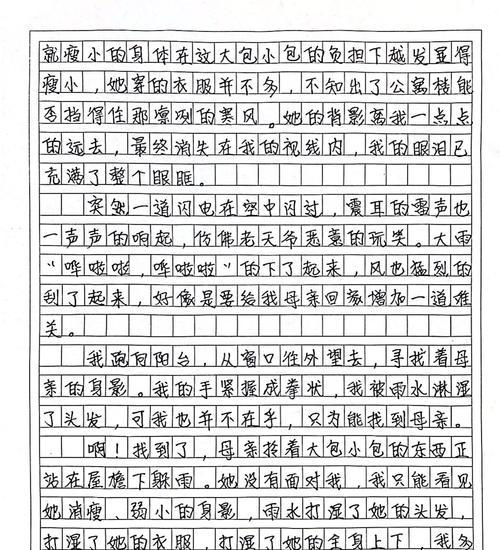 就瘦小的身体在这大包小包的负担下越发显得
瘦小，她穿的衣服并不多，不知出了公寓楼能
否挡得住那凛冽的寒风。她的背影离我一点点
的远去，最终消失在我的视线内，我的眼泪已
充满了整个眼眶。
突然一道闪电在空中闪过，震耳的雷声也
一声声的响起，仿佛老天爷恶意的玩笑。大雨
“哗啦啦，哗啦啦”的下了起来，风也猛烈的
刮了起来，好像是要给我母亲回家增加一道难
关。
我跑向阳台，从窗口往外望去，寻找着母
亲的身影。我的手紧握成拳状，我被雨水淋湿
了头发，可我也并不在乎，只为能找到母亲。
啊！找到了，母亲拎着大包小包的东西正
站在屋檐下躲雨。她没有面对我，我只能看见
她消瘦、弱小的身影，雨水打湿了她的头发，
打湿了她的衣服，打湿了她的全身上下，我多